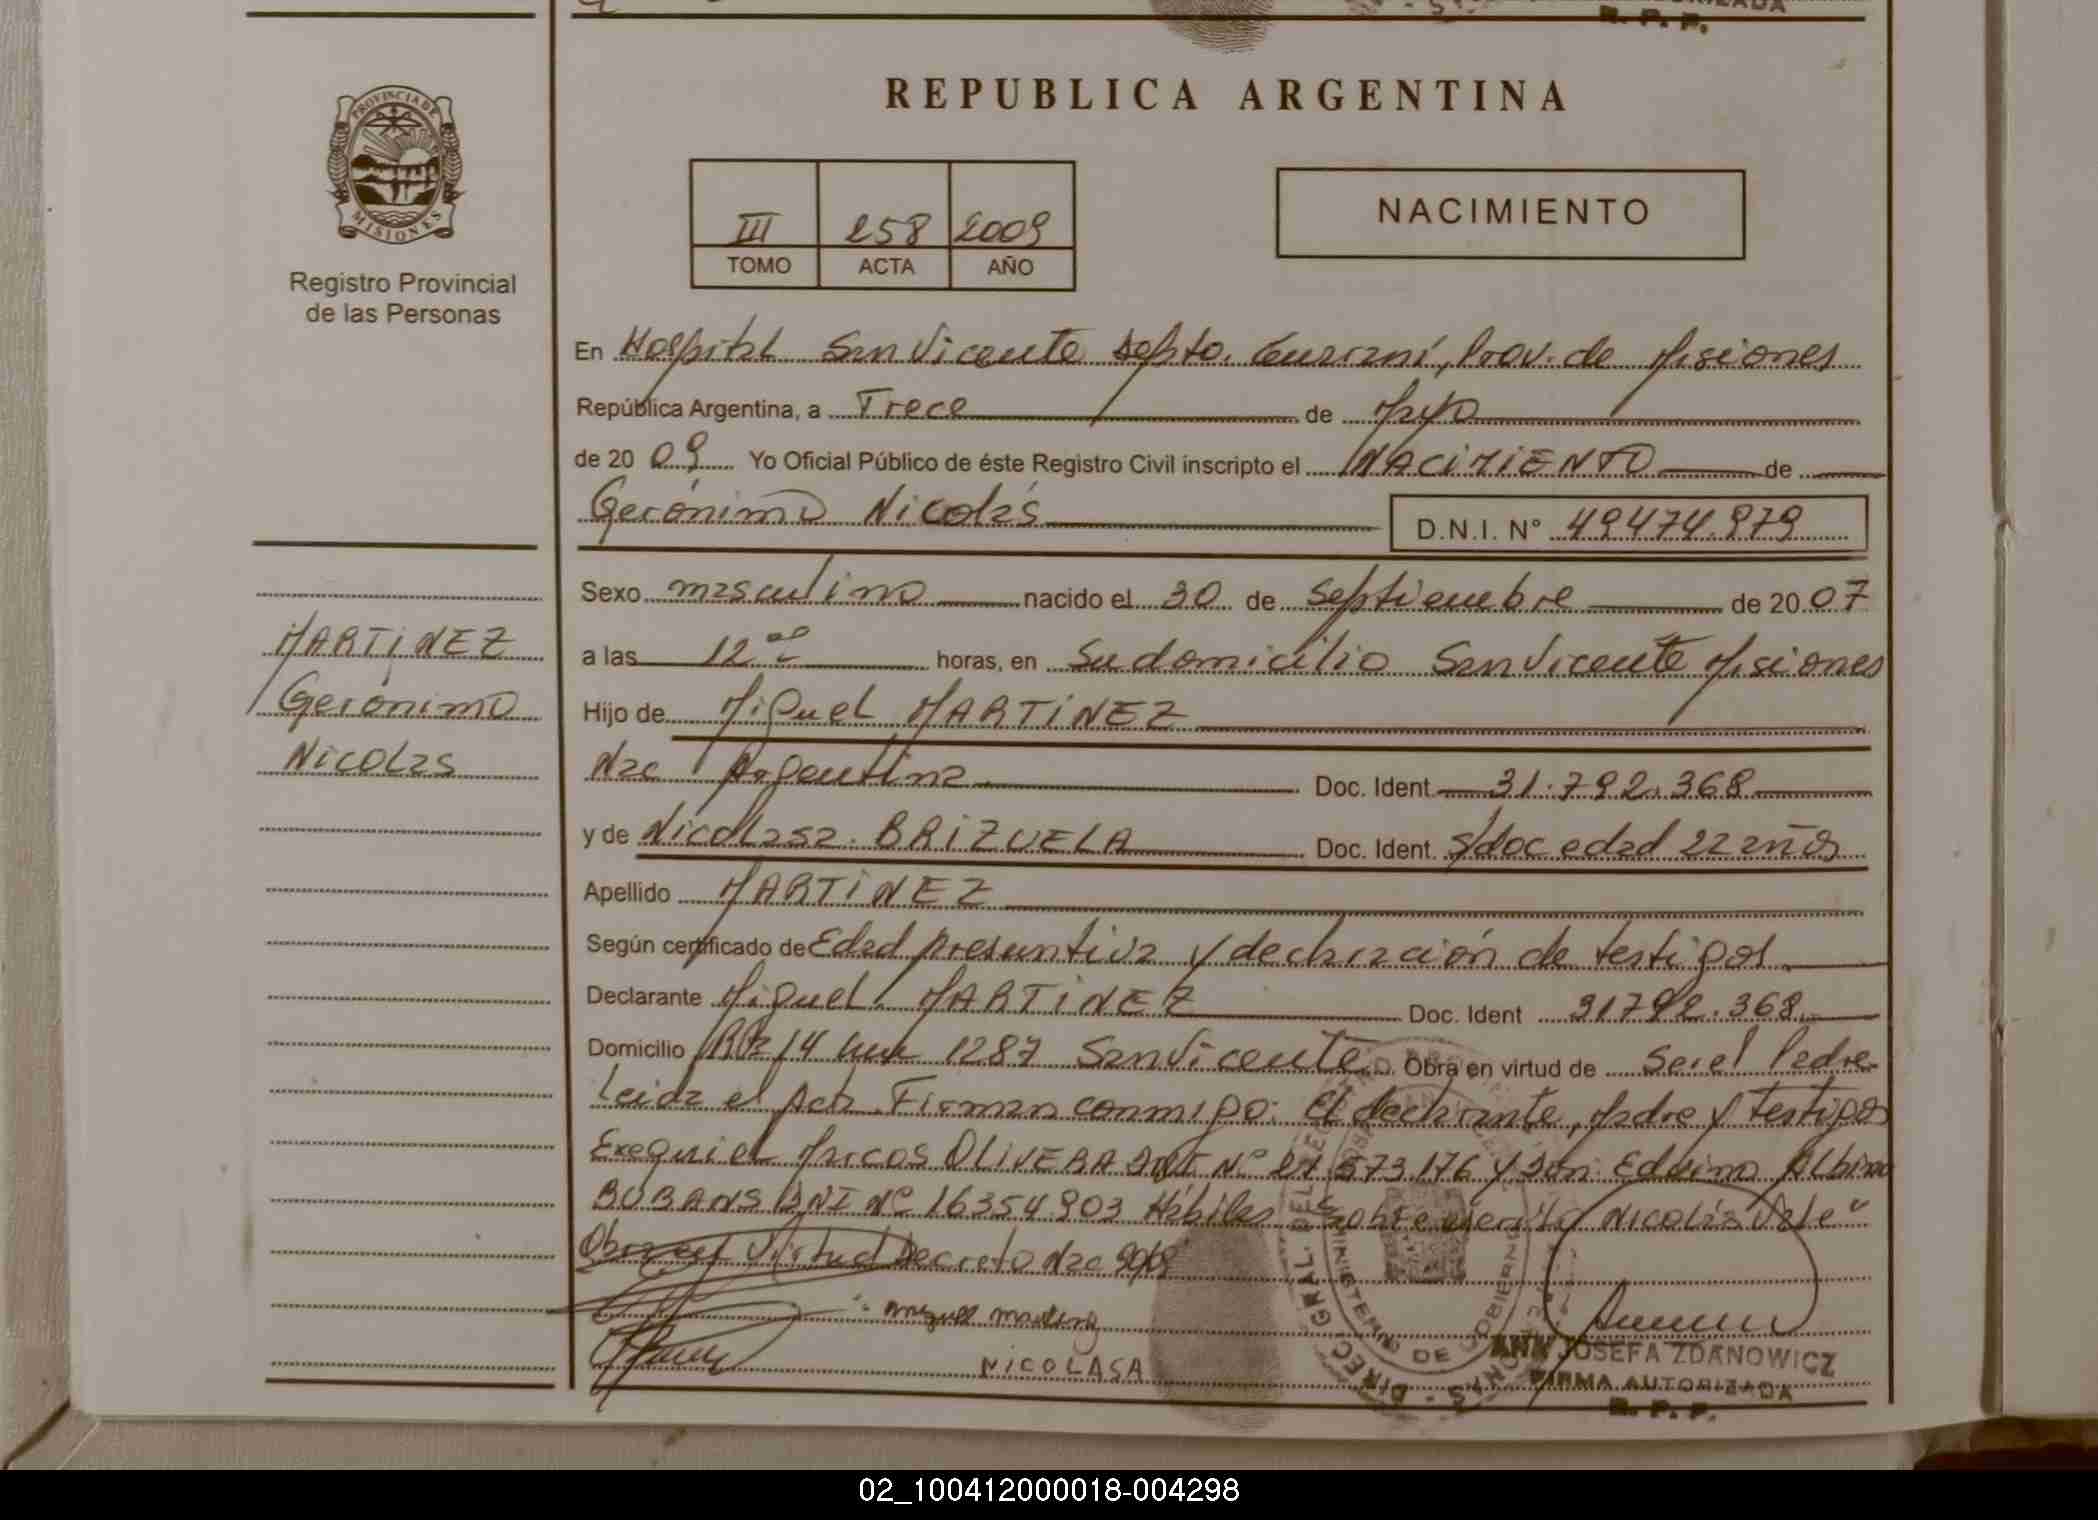 REPUBLICA ARGENTINA
PROVINCIA DE
MISIONES
Registro Provincial
de las Personas
III 258 2009
TOMO ACTA AÑO
NACIMIENTO
En Hospital San Vicente Depto. Guaraní, Prov. de Misiones
República Argentina, a Trece de Mayo
de 20 09 Yo Oficial Público de éste Registro Civil inscripto el NACIMIENTO de
Gerónimo Nicolás D.N.I. Nº 49474.979
Sexo masculino nacido el 30 de septiembre de 20 07
a las 12 horas, en Su domicilio San Vicente Misiones
Hijo de Miguel MARTINEZ
Nac Argentina Doc. Ident. 31.792.368
y de Nicolasa BRIZUELA Doc. Ident. S/doc edad 22 años
Apellido MARTINEZ
Según certificado de Edad presuntiva y declaración de testigos
Declarante Miguel MARTINEZ Doc. Ident 31792.368
Domicilio 14 km 1287 San Vicente Obra en virtud de Ser el Padre
Leida el Acta Firman conmigo: el declarante, Madre y testigos
Exequiel Marcos OLIVERA DNI Nº 573.176 y Don: Edvino Albino
BUBANS DNI Nº 16354.903 Hábiles Sobre Nicolás Vale"
Obra en Virtud Decreto Nac
MARTINEZ
Gerónimo
Nicolas
miguel
NICOLASA
MINISTERIO DE GOBIERNO
ANA JOSEFA ZDANOWICZ
FIRMA AUTORIZADA
R. P. P.
02_100412000018-004298